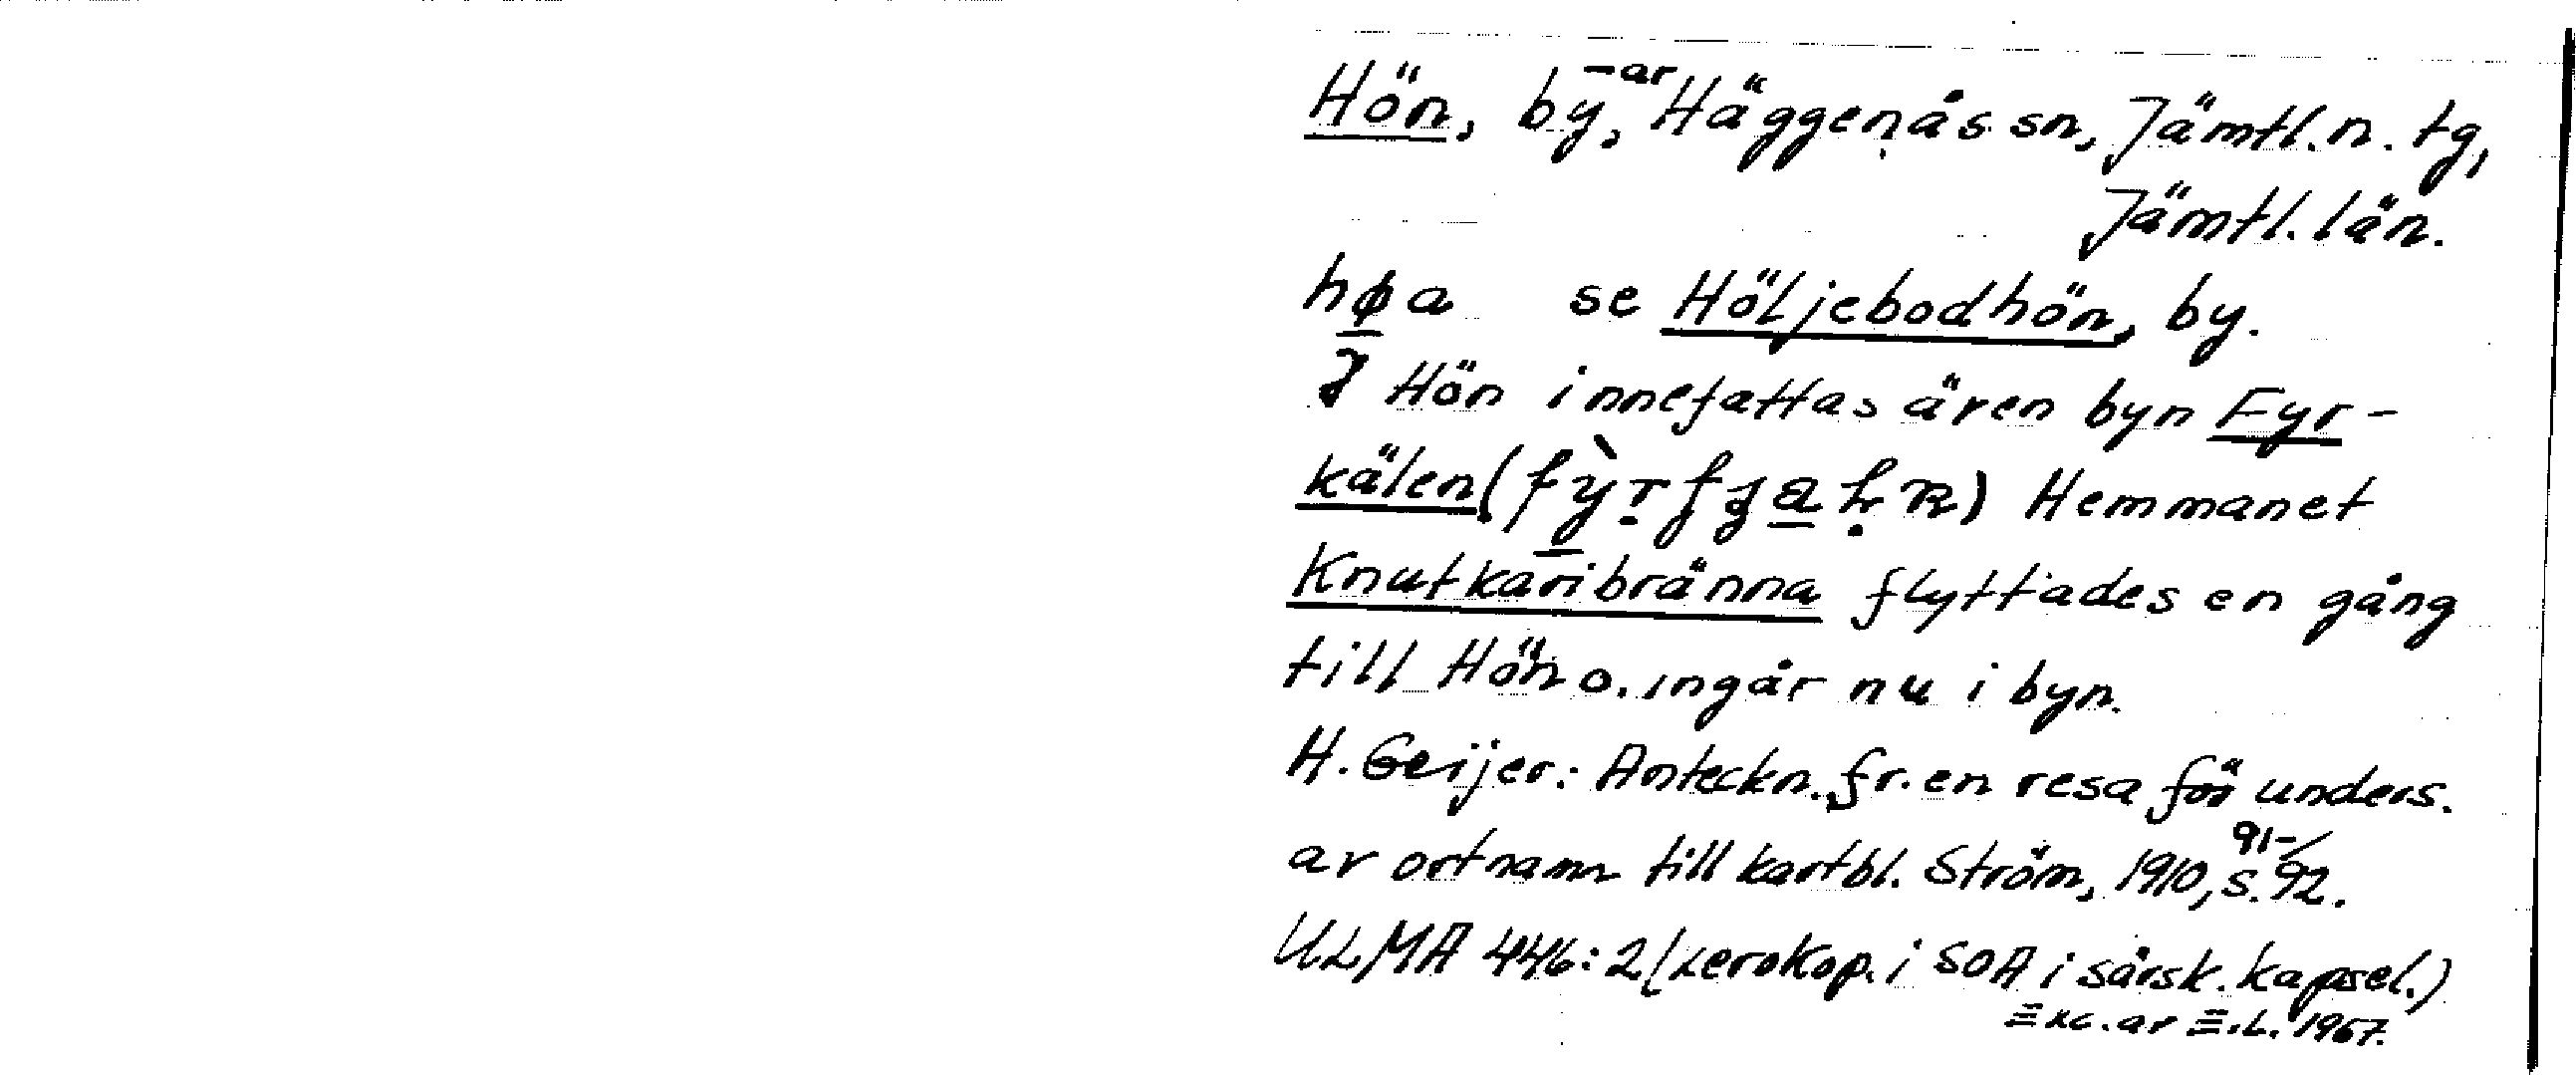 Hön, by, -ar Häggenås sn, Jämtl. n. tg,
Jämtl. län.
høa se Höljebodhön, by.
I Hön innefattas även byn Fyr-
kälen Hemmanet
Knutkaribränna flyttades en gång
till Hön o. ingår nu i byn.
H. Geijer: Anteckn. fr. en resa för unders.
av ortnamn till kartbl. Ström, 1910, s. 91-92.
ULMA 446:2 (xerokop. i SOA i särsk. kapsel.)
Exc. av E.L. 1967.